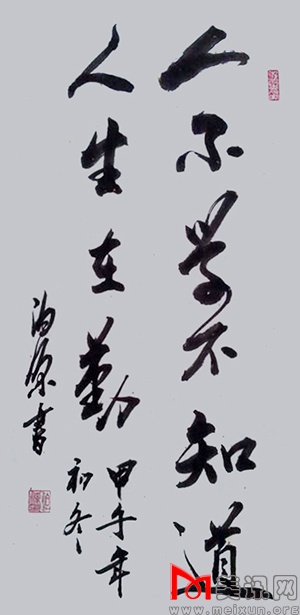 人不学不知道
人生在勤
甲午年
初冬
海源书
美讯网
www.meixun.org